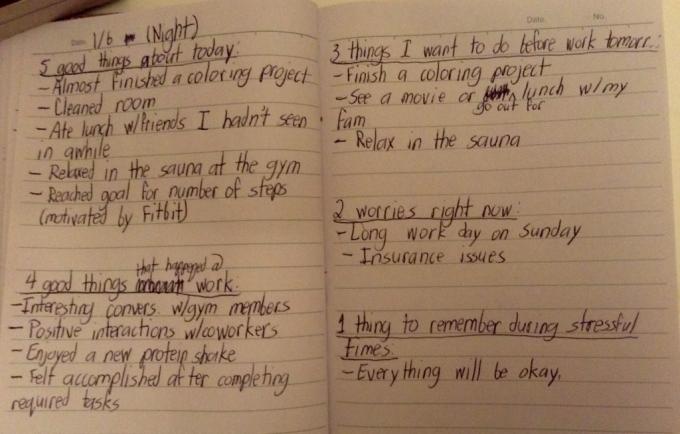 Date. 1/6 (Night)
5 good things about today:
- Almost finished a coloring project
- Cleaned room
- Ate lunch w/friends I hadn't seen
in awhile
- Relaxed in the sauna at the gym
- Reached goal for number of steps
(motivated by Fitbit)
that happened @
4 good things work:
- Interesting convers. w/gym members
- Positive interactions w/coworkers
- Enjoyed a new protein shake
- Felt accomplished after completing
required tasks
Date. No.
3 things I want to do before work tomorr.:
- Finish a coloring project
- See a movie or lunch w/my
go out for
fam
- Relax in the sauna
2 worries right now:
- Long work day on Sunday
- Insurance issues
1 thing to remember during stressful
times:
- Everything will be okay.